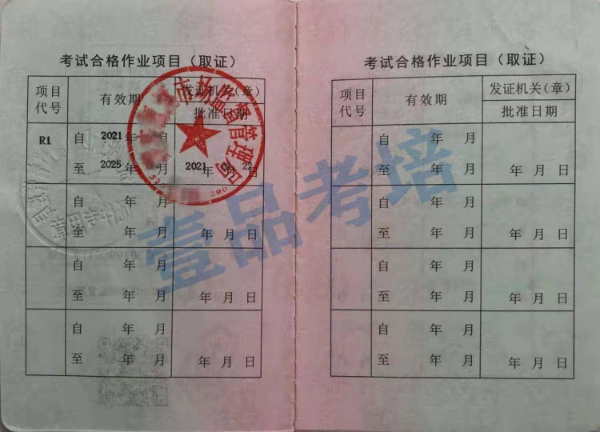 考试合格作业项目（取证）
项目代号 有效期 发证机关（章）
批准日期
R1 自 2021 年 月
至 2025 年 月 2021 年 月 22 日
自 年 月
至 年 月 年 月 日
自 年 月
至 年 月 年 月 日
自 年 月
至 年 月 年 月 日
市场监督管理局
考试合格作业项目（取证）
项目代号 有效期 发证机关（章）
批准日期
自 年 月
至 年 月 年 月 日
自 年 月
至 年 月 年 月 日
自 年 月
至 年 月 年 月 日
自 年 月
至 年 月 年 月 日
壹品考培